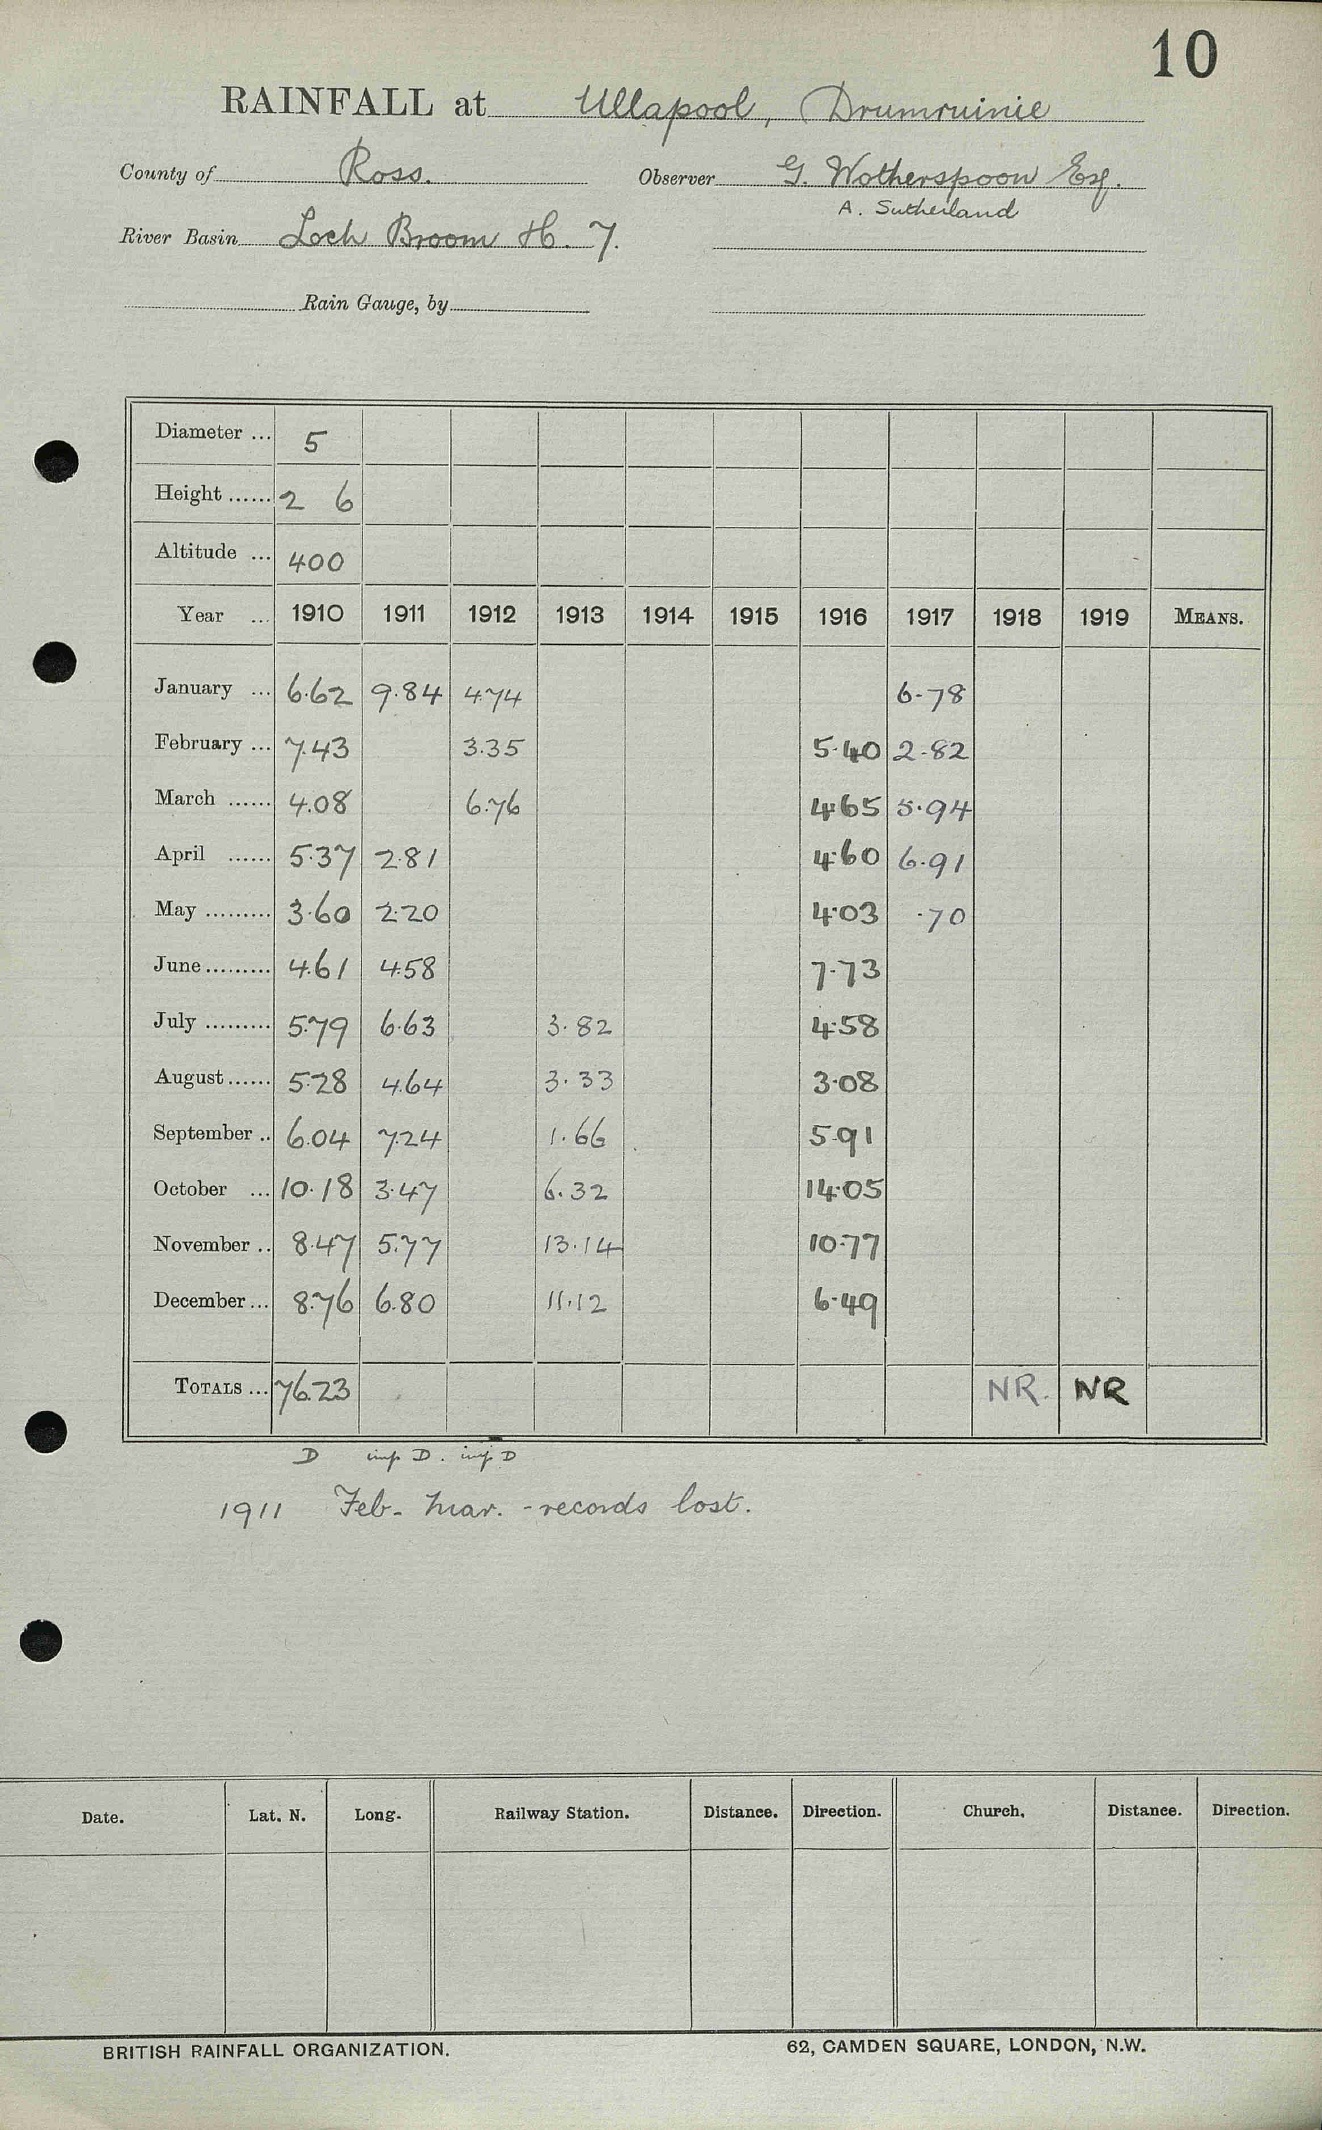 10
RAINFALL at Ullapool, Drumruinie
County of Ross. Observer G. Wotherspoon Esq.
A. Sutherland
River Basin Loch Broom H. 7.
Rain Gauge, by
Diameter ... 5
Height ...... 2 6
Altitude ... 400
Year ... 1910 1911 1912 1913 1914 1915 1916 1917 1918 1919 MEANS.
January ... 6.62 9.84 4.74 6.78
February ... 7.43 3.35 5.40 2.82
March ...... 4.08 6.76 4.65 5.94
April ...... 5.37 2.81 4.60 6.91
May ......... 3.60 2.20 4.03 .70
June ......... 4.61 4.58 7.73
July ......... 5.79 6.63 3.82 4.58
August ...... 5.28 4.64 3.33 3.08
September .. 6.04 7.24 1.66 5.91
October ... 10.18 3.47 6.32 14.05
November .. 8.47 5.77 13.14 10.77
December ... 8.76 6.80 11.12 6.49
TOTALS ... 76.23 NR. NR
D imp D. imp D
1911 Feb - Mar. - records lost.
Date. Lat. N. Long. Railway Station. Distance. Direction. Church. Distance. Direction.
BRITISH RAINFALL ORGANIZATION. 62, CAMDEN SQUARE, LONDON, N.W.